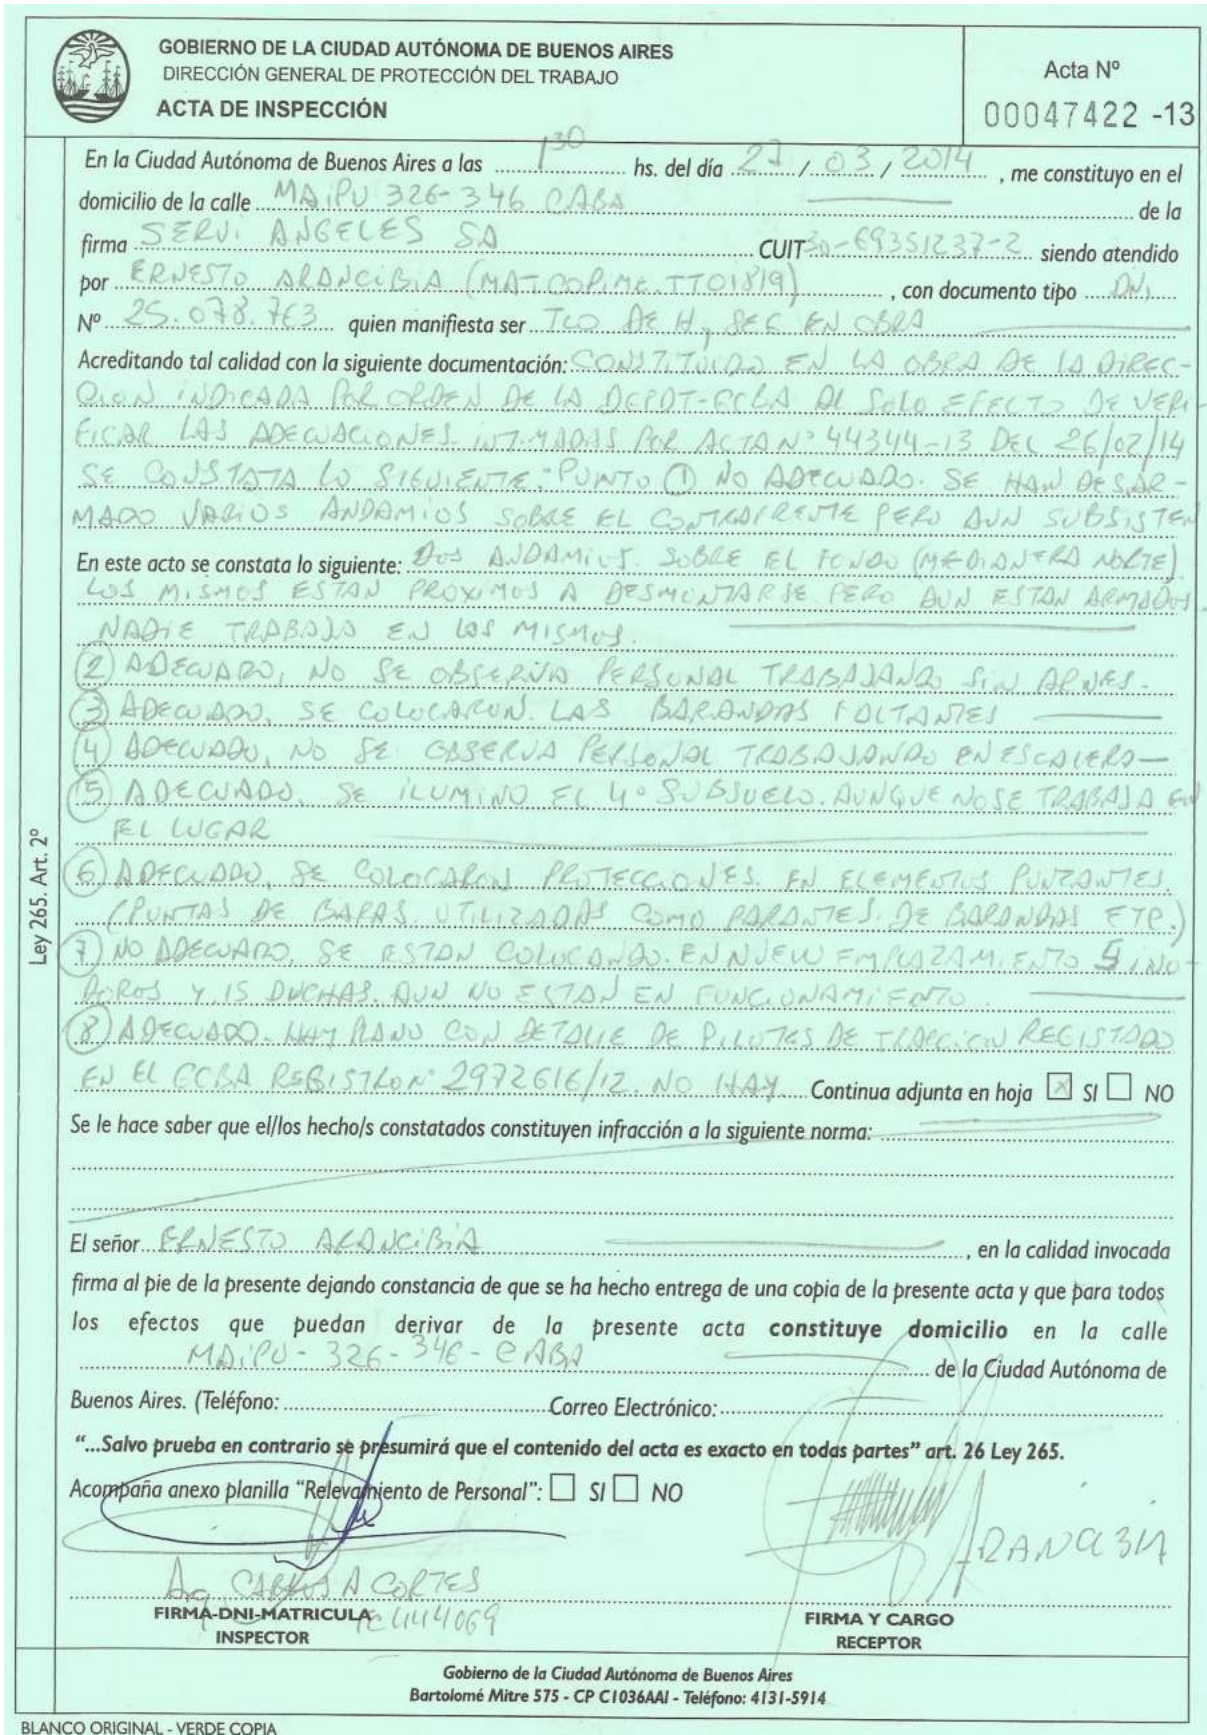 GOBIERNO DE LA CIUDAD AUTÓNOMA DE BUENOS AIRES
DIRECCIÓN GENERAL DE PROTECCIÓN DEL TRABAJO
ACTA DE INSPECCIÓN
Acta Nº
00047422 -13
En la Ciudad Autónoma de Buenos Aires a las 130 hs. del día 27 / 03 / 2014 , me constituyo en el
domicilio de la calle MAIPU 326-346 CABA de la
firma SERV. ANGELES SA CUIT 30-69351237-2 siendo atendido
por ERNESTO ARANCIBIA (MAT COPIME TT01819) , con documento tipo DNI
Nº 25.078.763 quien manifiesta ser TCO DE H Y SEG EN OBRA
Acreditando tal calidad con la siguiente documentación: CONSTITUIDO EN LA OBRA DE LA DIREC-
CION INDICADA POR ORDEN DE LA DGPDT-GCBA AL SOLO EFECTO DE VERI-
FICAR LAS ADECUACIONES INTIMADAS POR ACTA Nº 44344-13 DEL 26/02/14
SE CONSTATA LO SIGUIENTE: PUNTO ① NO ADECUADO. SE HAN DESAR-
MADO VARIOS ANDAMIOS SOBRE EL CONTRAFRENTE PERO AUN SUBSISTEN
En este acto se constata lo siguiente: DOS ANDAMIOS SOBRE EL FONDO (MEDIANERA NORTE)
LOS MISMOS ESTAN PROXIMOS A DESMONTARSE PERO AUN ESTAN ARMADOS.
NADIE TRABAJA EN LOS MISMOS.
② ADECUADO, NO SE OBSERVA PERSONAL TRABAJANDO SIN ARNES.
③ ADECUADO, SE COLOCARON LAS BARANDAS FALTANTES
④ ADECUADO, NO SE OBSERVA PERSONAL TRABAJANDO EN ESCALERA
⑤ ADECUADO, SE ILUMINO EL 4º SUBSUELO. AUNQUE NO SE TRABAJA EN
EL LUGAR
⑥ ADECUADO, SE COLOCARON PROTECCIONES EN ELEMENTOS PUNZANTES.
(PUNTAS DE BARAS UTILIZADAS COMO PARANTES DE BARANDAS ETC.)
⑦ NO ADECUADO, SE ESTAN COLOCANDO EN NUEVO EMPLAZAMIENTO 5 INO-
DOROS Y 15 DUCHAS. AUN NO ESTAN EN FUNCIONAMIENTO.
⑧ ADECUADO. HAY PLANO CON DETALLE DE PILOTES DE TRACCION REGISTADO
EN EL GCBA REGISTRO Nº 2972616/12. NO HAY Continua adjunta en hoja ☒ SI ☐ NO
Se le hace saber que el/los hecho/s constatados constituyen infracción a la siguiente norma:
El señor ERNESTO ARANCIBIA , en la calidad invocada
firma al pie de la presente dejando constancia de que se ha hecho entrega de una copia de la presente acta y que para todos
los efectos que puedan derivar de la presente acta constituye domicilio en la calle
MAIPU - 326-346 - CABA de la Ciudad Autónoma de
Buenos Aires. (Teléfono: Correo Electrónico:
“...Salvo prueba en contrario se presumirá que el contenido del acta es exacto en todas partes” art. 26 Ley 265.
Acompaña anexo planilla “Relevamiento de Personal”: ☐ SI ☐ NO
ARANCIBIA
Arq CARLOS A CORTES
FIRMA-DNI-MATRICULA
INSPECTOR
FIRMA Y CARGO
RECEPTOR
Gobierno de la Ciudad Autónoma de Buenos Aires
Bartolomé Mitre 575 - CP C1036AAI - Teléfono: 4131-5914
BLANCO ORIGINAL - VERDE COPIA
Ley 265. Art. 2º